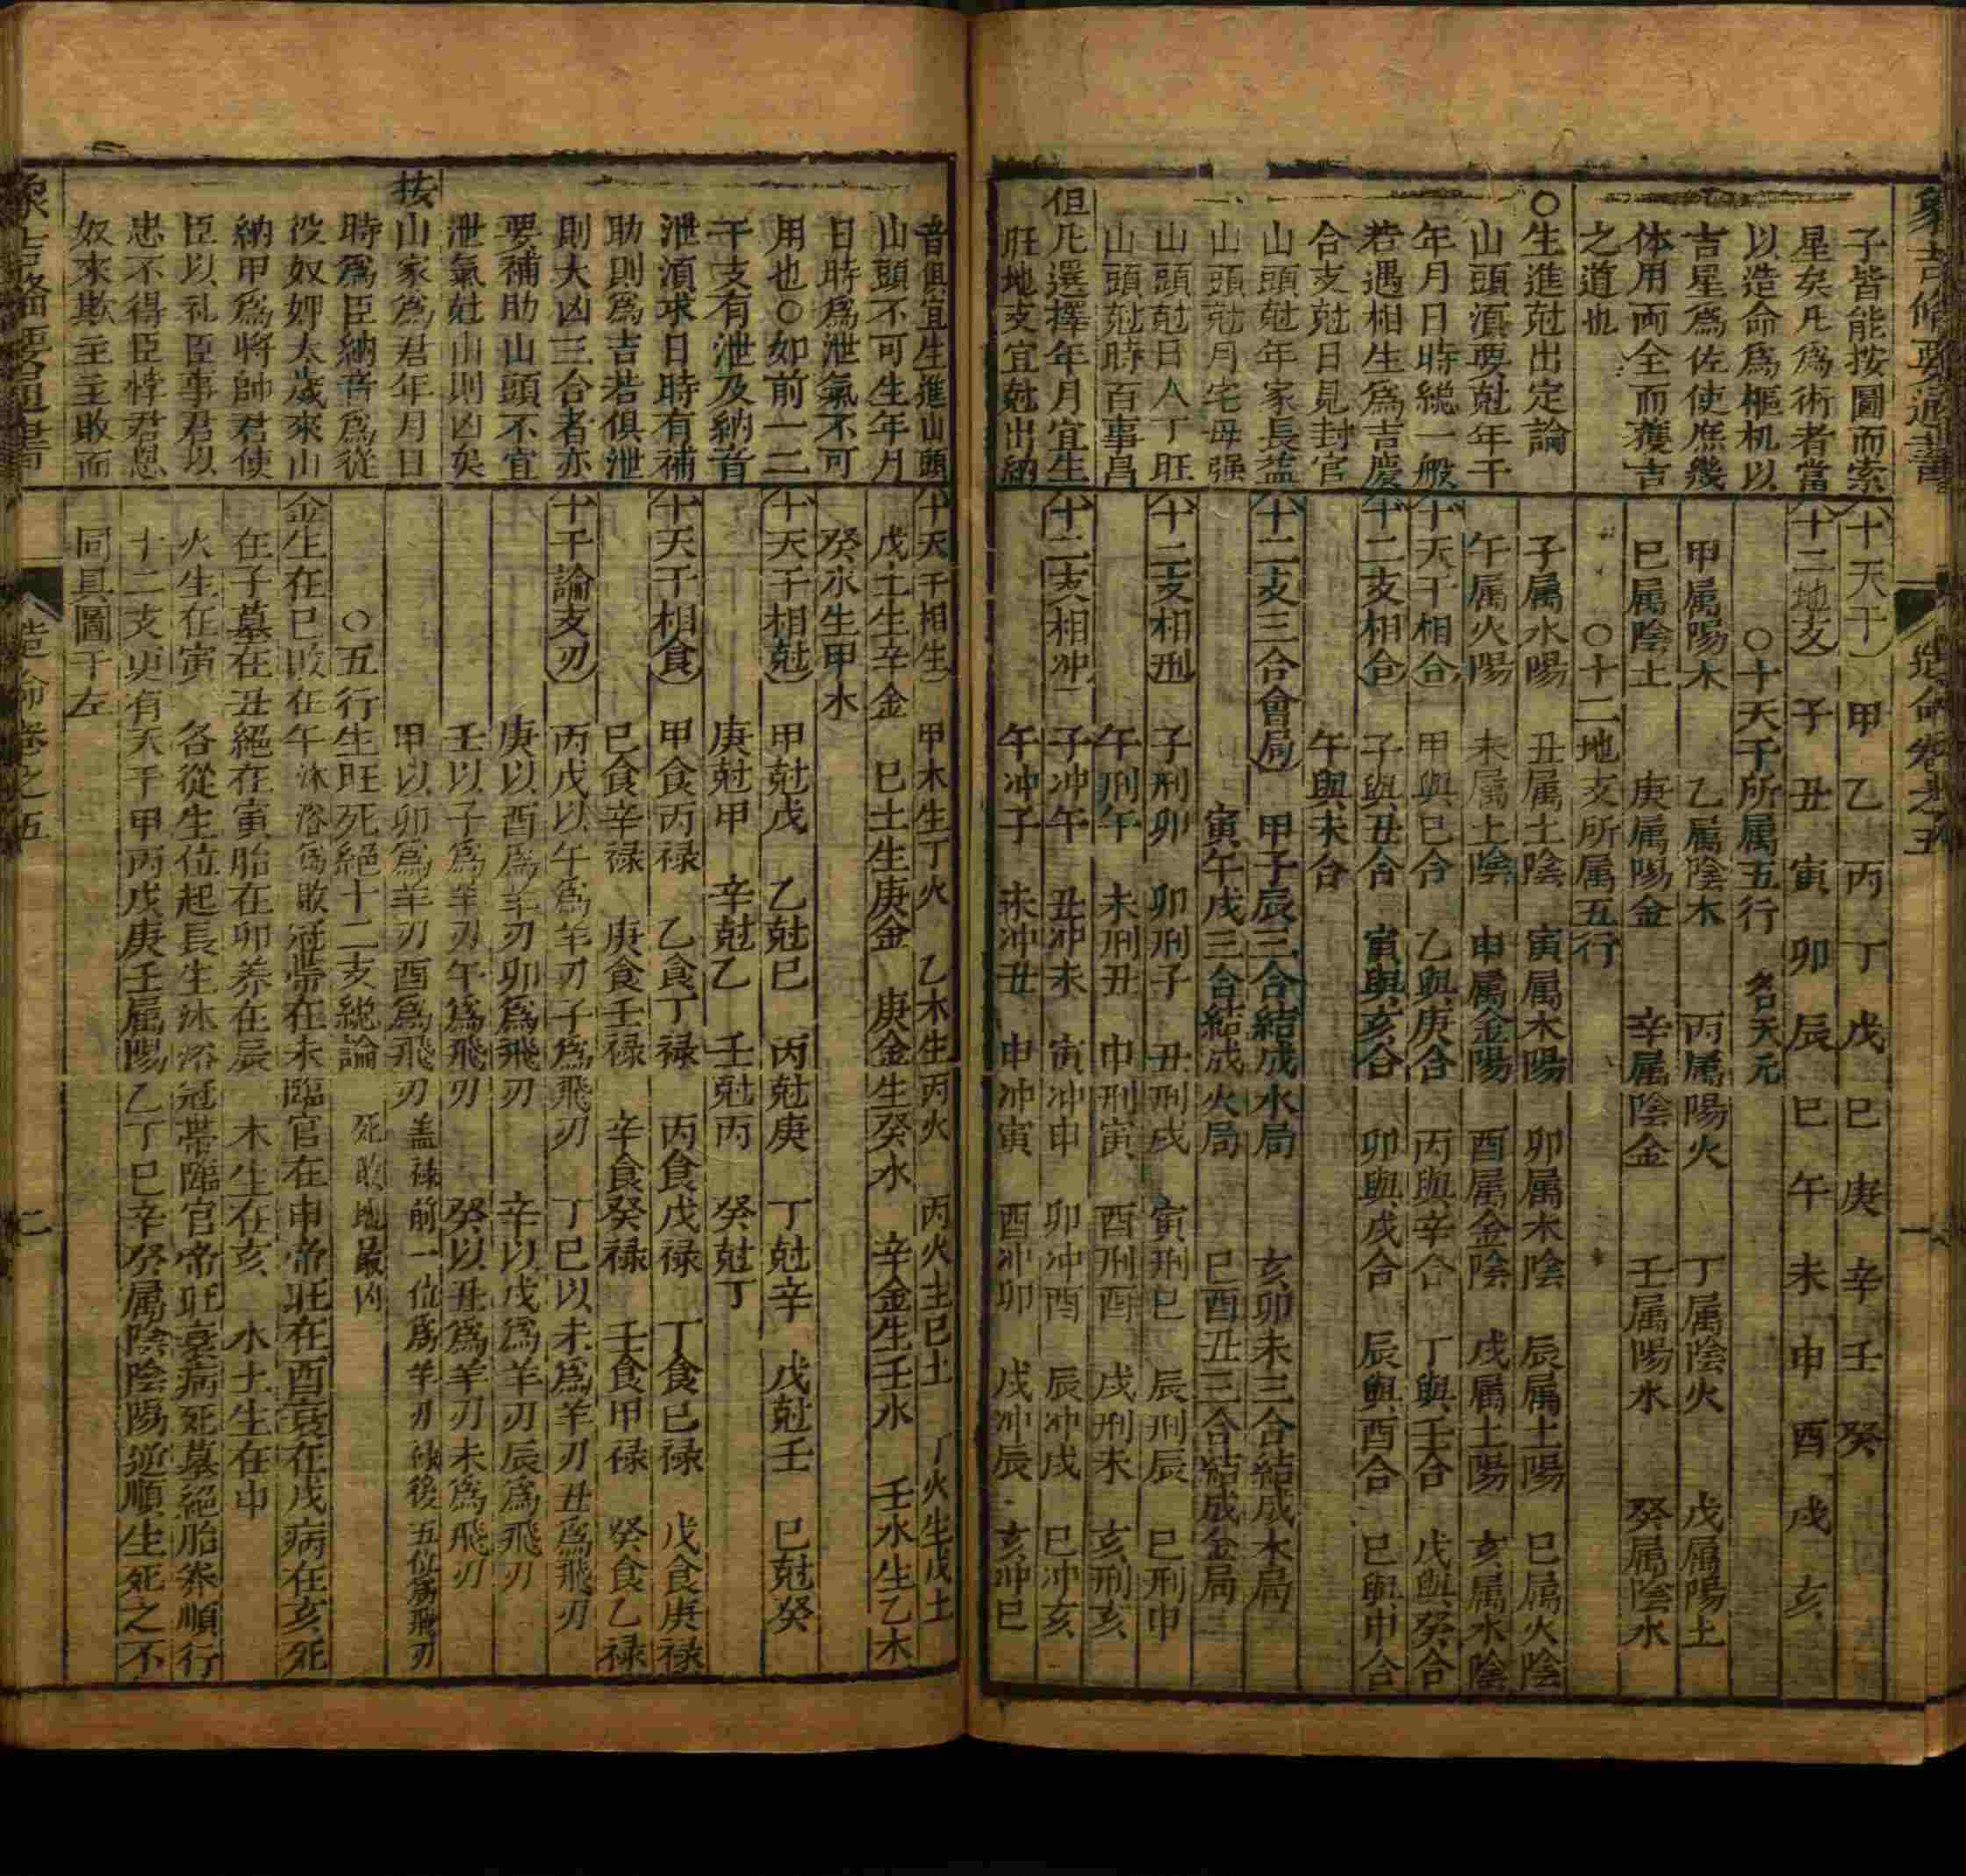 象吉備要通書
造命卷之五
一
子皆能按圖而索
星矣凡爲術者當
以造命爲樞机以
吉星爲佐使庶幾
体用両全而獲吉
之道也
○生進尅出定論
山頭湏要尅年干
年月日時総一般
若遇相生爲吉慶
合支尅日見封官
山頭尅年家長益
山頭尅月宅母强
山頭尅日人丁旺
山頭尅時百事昌
但凡選擇年月宜生
旺地支宜尅出納
十天干 甲 乙 丙 丁 戊 巳 庚 辛 壬 癸
十二地支 子 丑 寅 卯 辰 巳 午 未 申 酉 戌 亥
○十天干所属五行 名天元
甲属陽木 乙属陰木 丙属陽火 丁属陰火 戊属陽土
巳属陰土 庚属陽金 辛属陰金 壬属陽水 癸属陰水
○十二地支所属五行
子属水陽 丑属土陰 寅属木陽 卯属木陰 辰属土陽 巳属火陰
午属火陽 未属土陰 申属金陽 酉属金陰 戌属土陽 亥属水陰
十天干相合 甲與巳合 乙與庚合 丙與辛合 丁與壬合 戊與癸合
十二支相合 子與丑合 寅與亥合 卯與戌合 辰與酉合 巳與申合
午與未合
十二支三合會局 申子辰三合結成水局 亥卯未三合結成木局
寅午戌三合結成火局 巳酉丑三合結成金局
十二支相刑 子刑卯 卯刑子 丑刑戌 寅刑巳 辰刑辰 巳刑申
午刑午 未刑丑 申刑寅 酉刑酉 戌刑未 亥刑亥
十二支相冲 子冲午 丑冲未 寅冲申 卯冲酉 辰冲戌 巳冲亥
午冲子 未冲丑 申冲寅 酉冲卯 戌冲辰 亥冲巳
音俱宜生進山頭
山頭不可生年月
日時爲泄氣不可
用也○如前一二
干支有泄及納音
泄湏求日時有補
助則爲吉若俱泄
則大凶三合者亦
要補助山頭不宜
泄氣尅山則凶矣
按山家爲君年月日
時爲臣納音爲從
役奴婢太歲來山
納甲爲將帥君使
臣以礼臣事君以
忠不得臣悖君恩
奴來欺主主敗而
十天干相生 甲木生丁火 乙木生丙火 丙火生巳土 丁火生戊土
戊土生辛金 巳土生庚金 庚金生癸水 辛金生壬水 壬水生乙木
癸水生甲木
十天干相尅 甲尅戊 乙尅巳 丙尅庚 丁尅辛 戊尅壬 巳尅癸
庚尅甲 辛尅乙 壬尅丙 癸尅丁
十天干相食 甲食丙禄 乙食丁禄 丙食戊禄 丁食巳禄 戊食庚禄
巳食辛禄 庚食壬禄 辛食癸禄 壬食甲禄 癸食乙禄
十干論支刃 丙戊以午爲羊刃子爲飛刃 丁巳以未爲羊刃丑爲飛刃
庚以酉爲羊刃卯爲飛刃 辛以戌爲羊刃辰爲飛刃
壬以子爲羊刃午爲飛刃 癸以丑爲羊刃未爲飛刃
甲以卯爲羊刃酉爲飛刃 盖禄前一位爲羊刃禄後五位爲飛刃
○五行生旺死絕十二支総論 死敗地最凶
金生在巳敗在午沐浴爲敗冠帶在未臨官在申帝旺在酉衰在戌病在亥死
在子墓在丑絕在寅胎在卯养在辰 木生在亥 水土生在申
火生在寅 各從生位起長生沐浴冠帶臨官帝旺衰病死墓絕胎养順行
十二支更有天干甲丙戊庚壬属陽乙丁巳辛癸属陰陰陽逆順生死之不
同具圖于左
象吉備要通書
造命卷之五
二